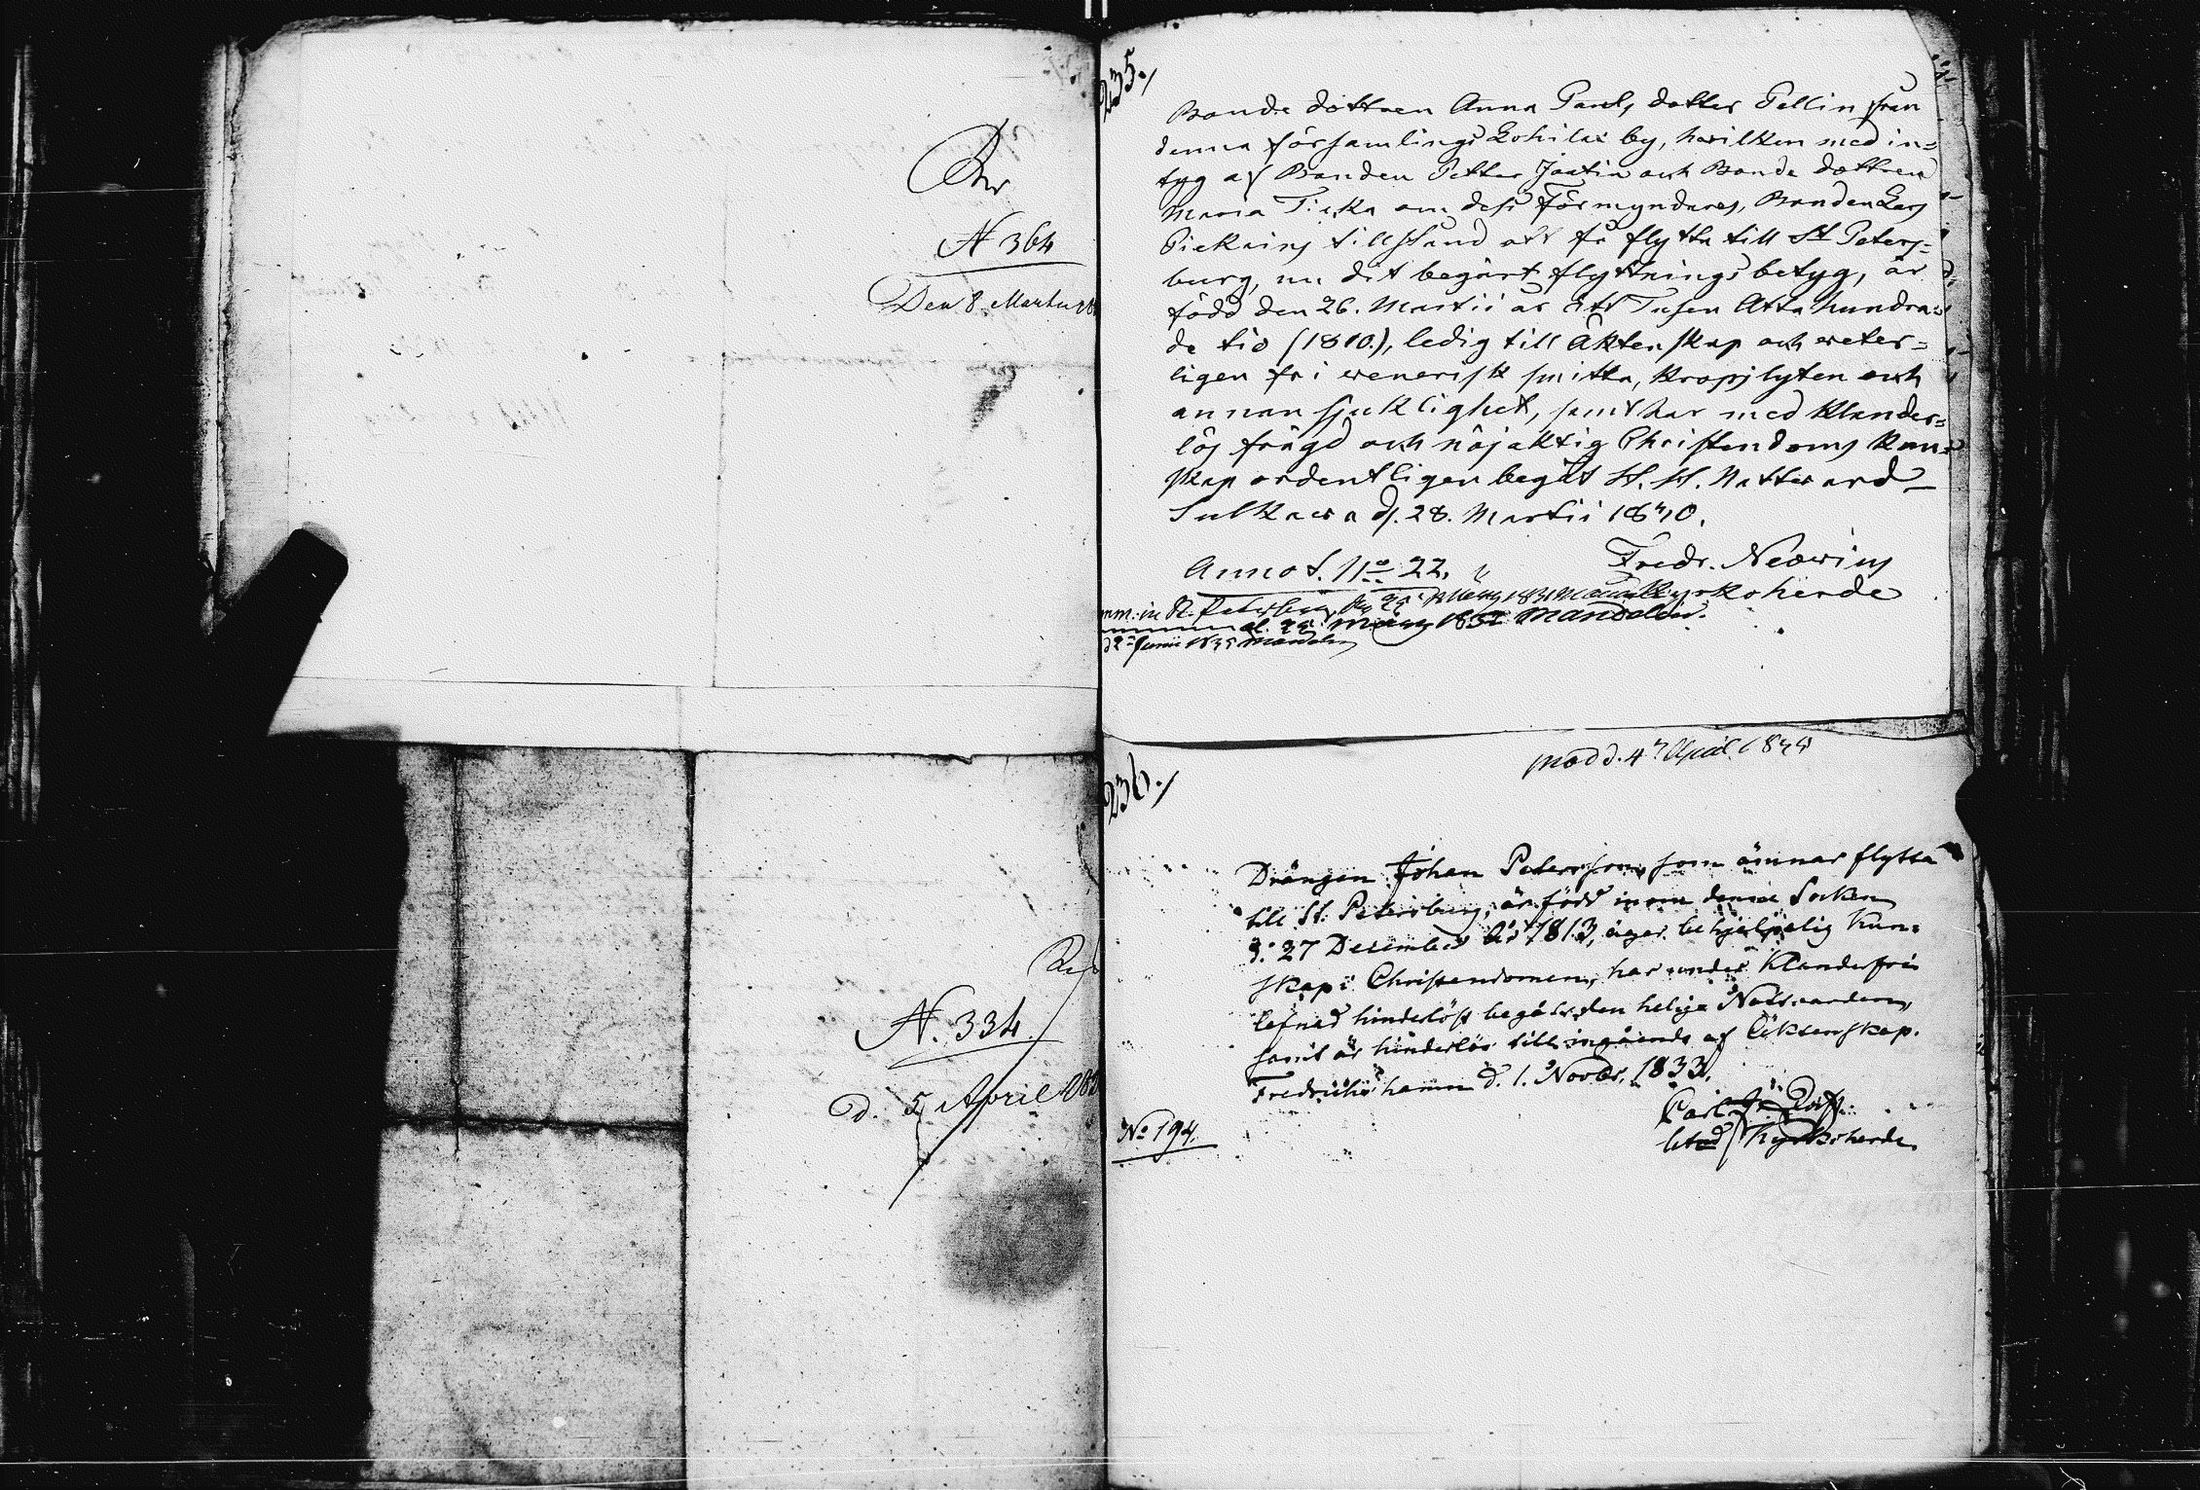 N 364
Den 8 Martii
N. 334
d. 5 April
235./
Bonde dottren Anna Pauls dotter Pellin från
denna församlings Lohilax by, hwilken med in=
tyg af Bonden Petter Jantin och Bonde dottren
Maria Tiska om dess Förmynders, Bonden Lars
Pickains tillstånd att få flytta till St Peters=
burg, nu dit begärt flyttnings betyg, är
född den 26. Martii år Ett Tusen Åtta hundra=
de tio (1810.), ledig till Äktenskap och weter=
ligen fri wenerisk smitta, kropslyten och
annan sjuklighet, samt har med klander=
lös frägd och nöjaktig Christendoms kun=
skap ordentligen begåt H. H. Nattward_
Sulkawa d. 28. Martii 1840.
Fredr. Neovius
Kyrkoherde
Annot. No 22.
in St. Petersburg
236./
d. 4 April
Drängen Johan Petersson, som ämnar flytta
till St. Petersburg, är född inom denna Socken
d. 27 December år 1813, äger behjelpelig kun=
skap i Christendomen, har under klanderfri
lefnad hinderlöst begått den heliga Nattvarden,
samt är hinderlös till ingående af Äktenskap.
Fredrichshamn d. 1. Novbr. 1833.
Carl
Kyrkoherde
No 194.